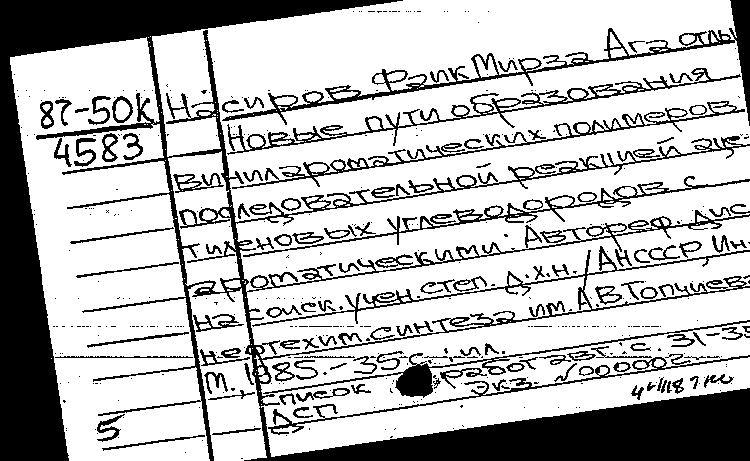 87-50К
4583
Насиров, Фзик Мирза Ага оглы
Новые пути образования
винилароматических полимеров
последовательной реакцией аце-
тиленовых углеводородов с
ароматическими: Автореф. дис
на соиск. учен. степ. д.х.н. / АН СССР, Ин-
нефтехим. синтеза им. А.В. Топчиева
М., 1985. - 35 с.: ил.
Список работ авт.: с. 31-35
ДСП Экз. №000002
5